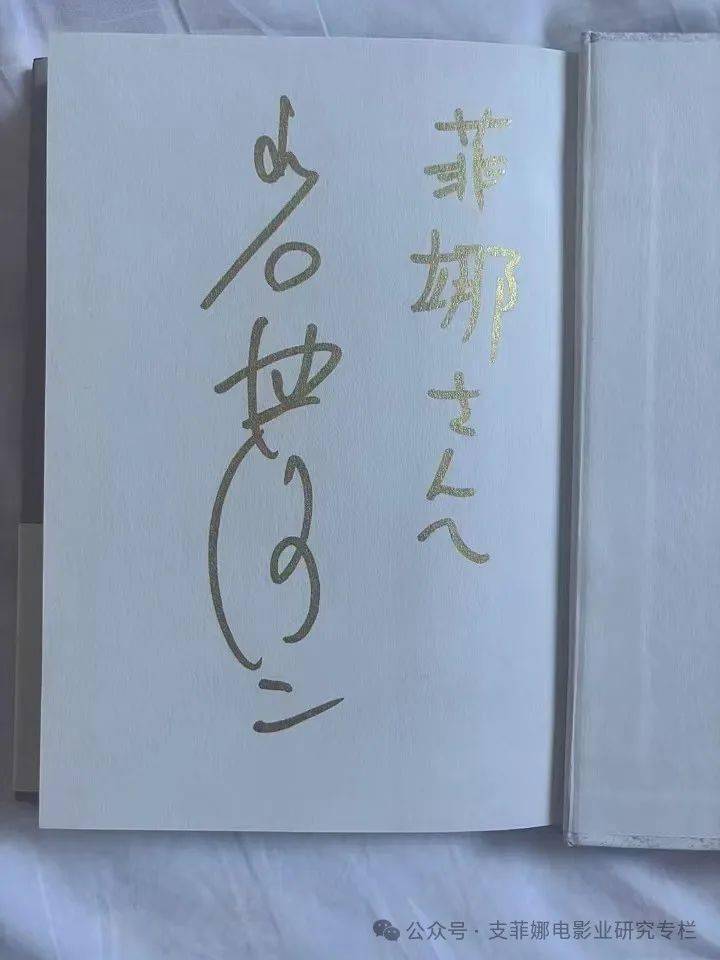 菲娜さんへ
岩井俊二
公众号·支菲娜电影业研究专栏